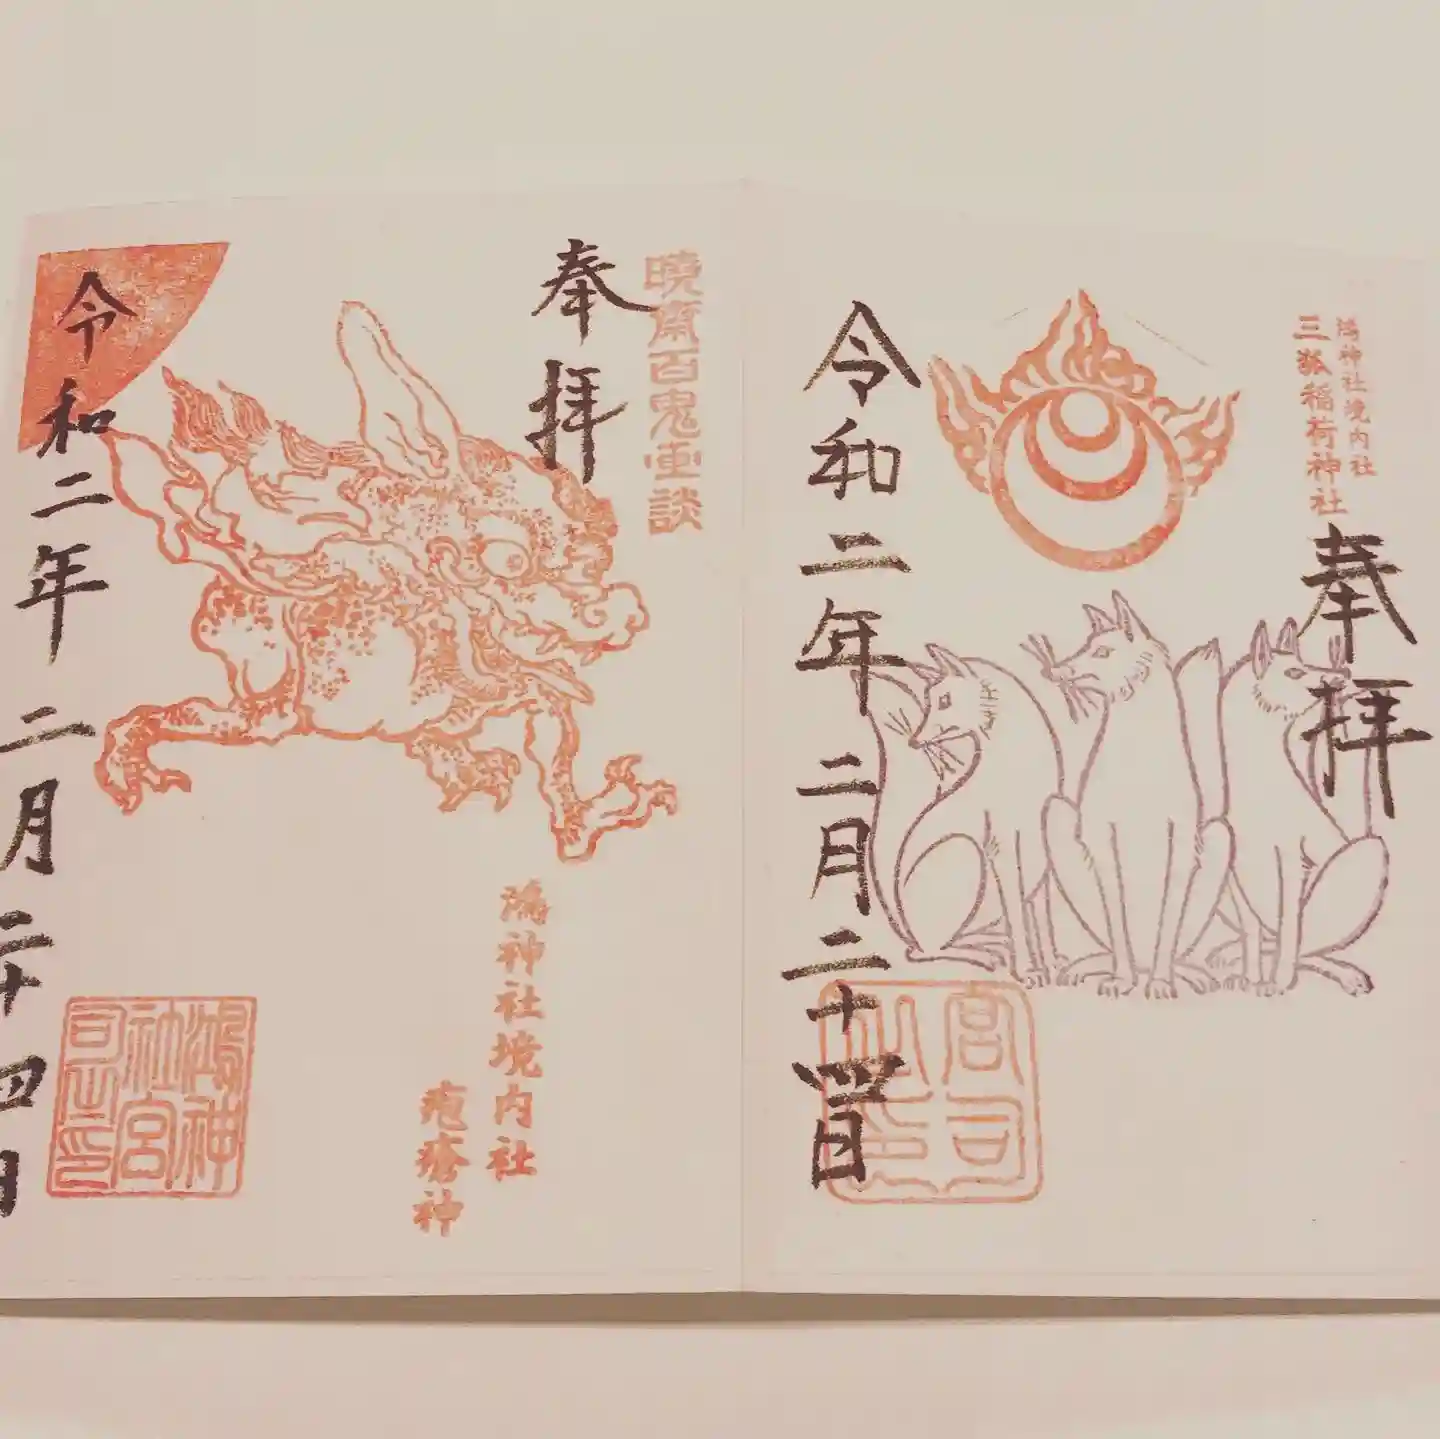 鴻神社境内社
三狐稲荷神社
奉拝
令和二年二月二十四日
宮司
暁斎百鬼画談
奉拝
鴻神社境内社
疱瘡神
令和二年二月二十四日
鴻神
社宮
司之印